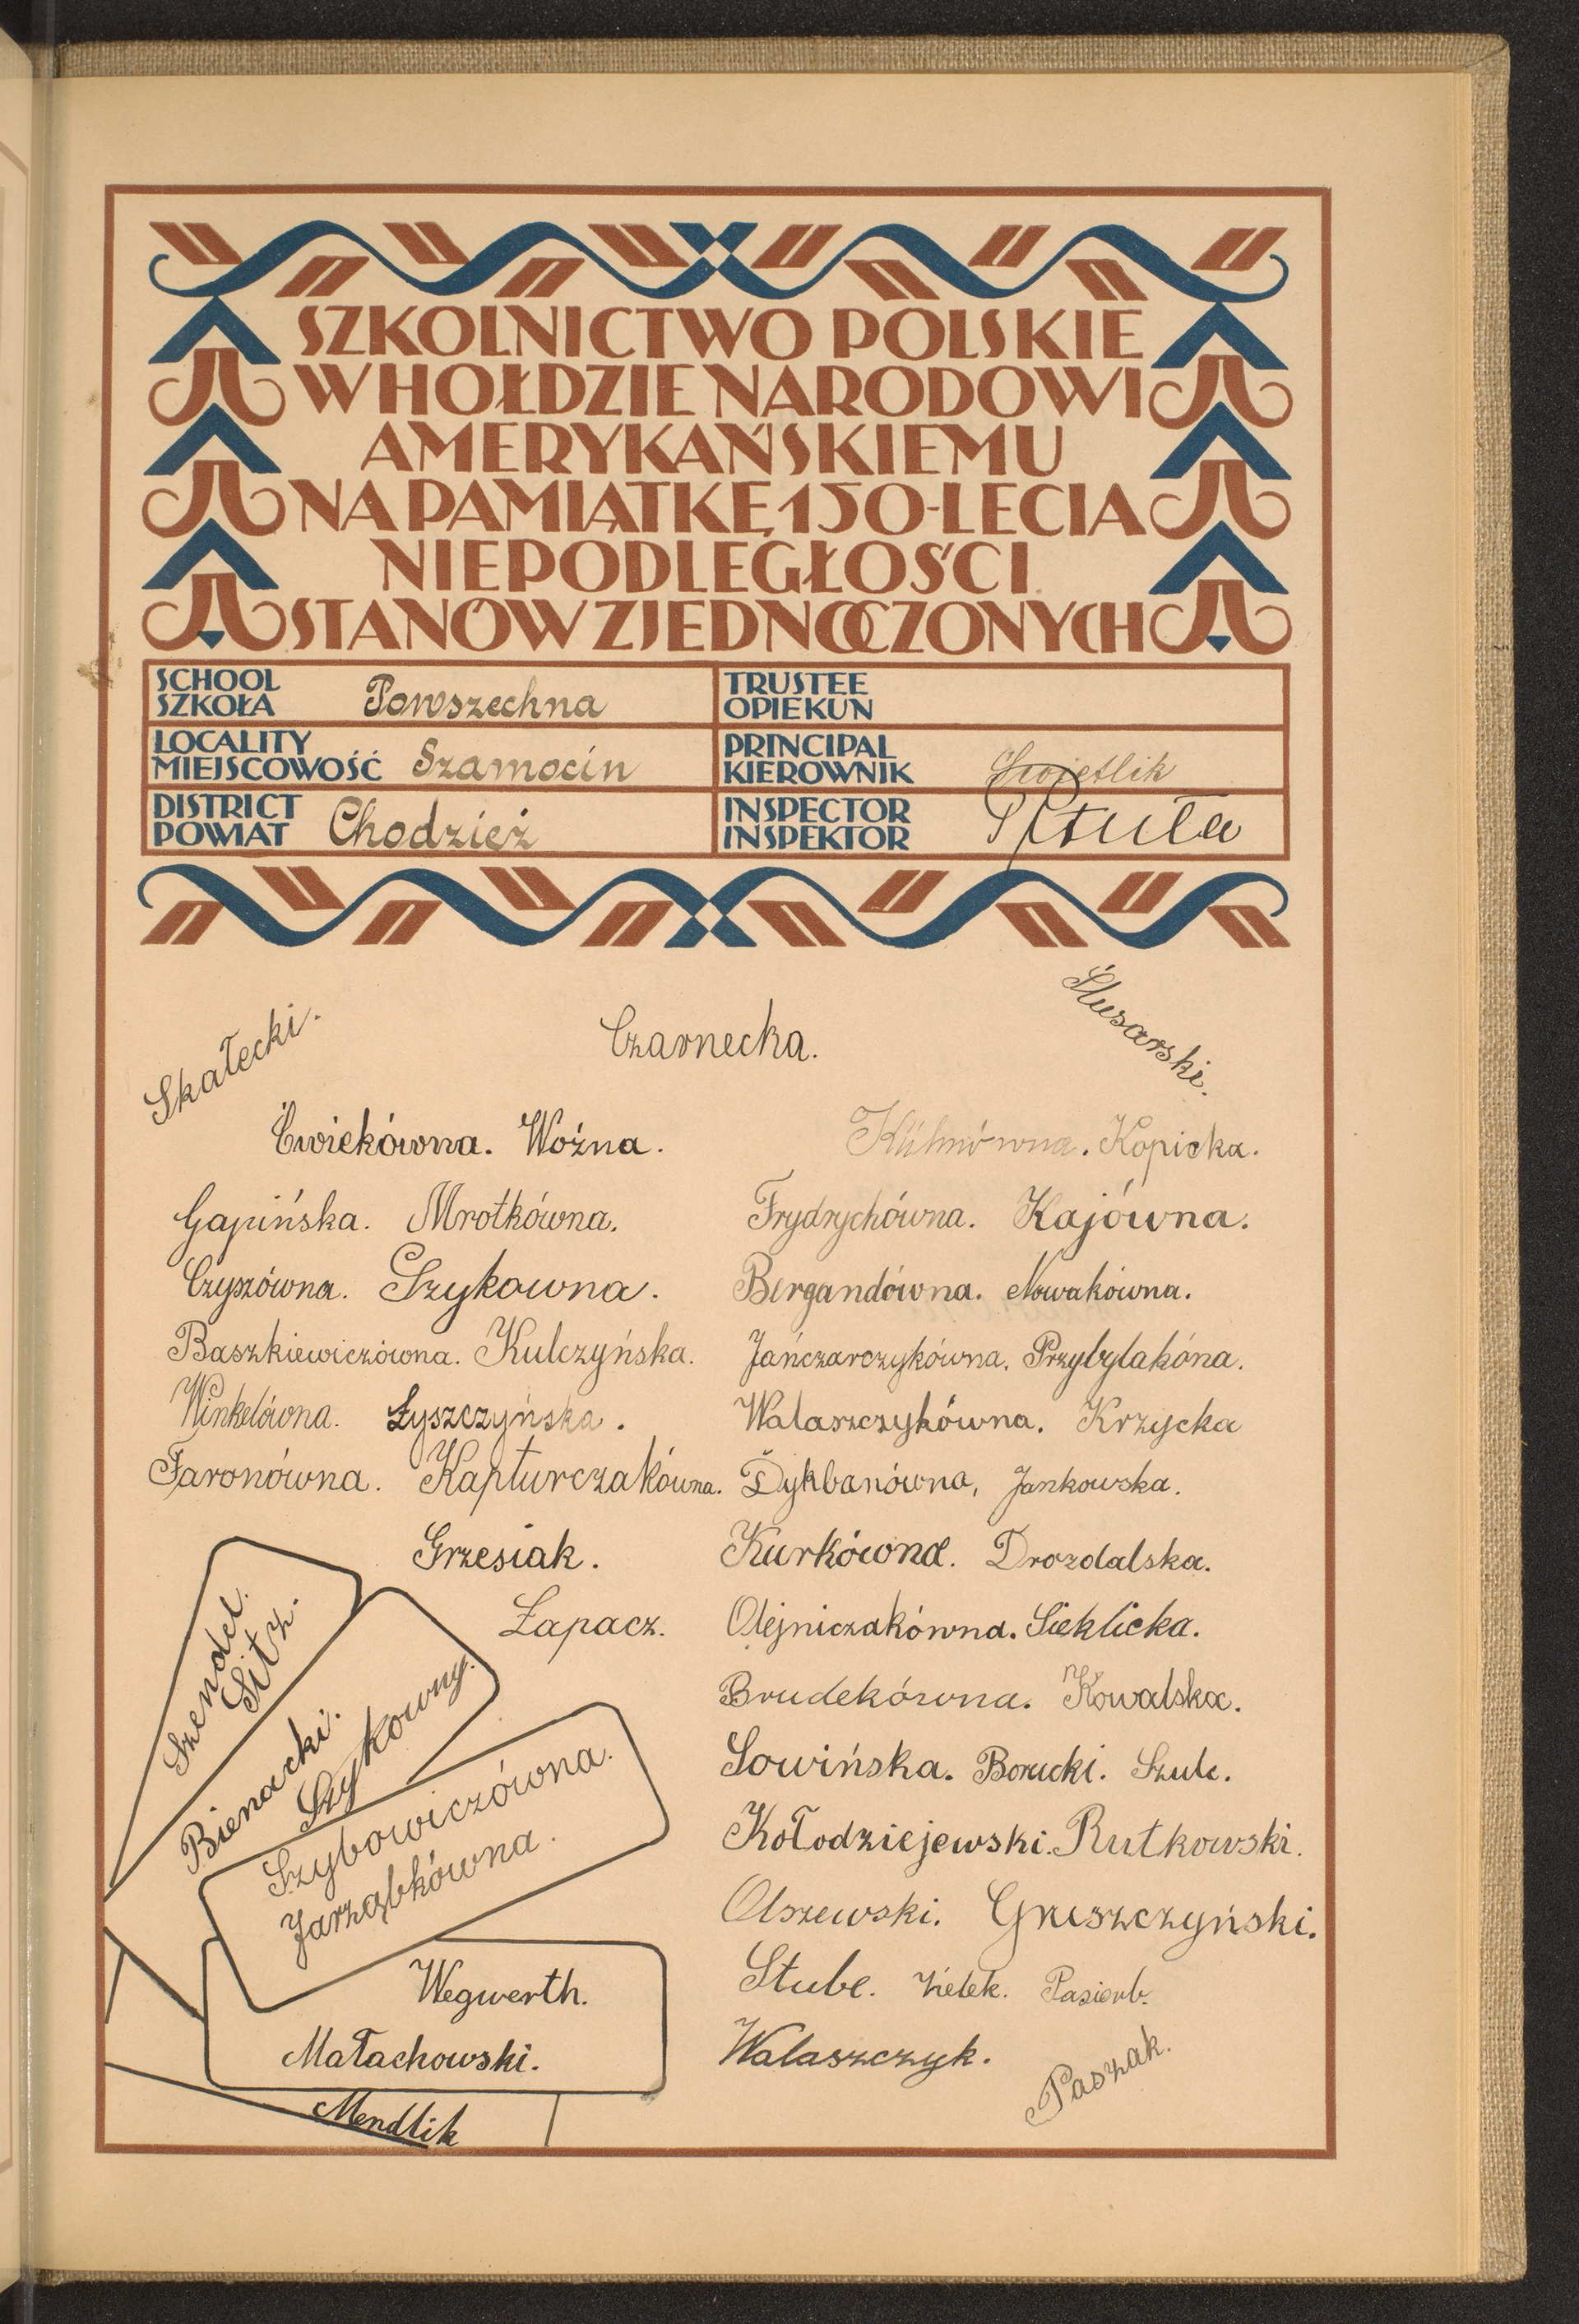 SZKOLNICTWO POLSKIE
W HOŁDZIE NARODOWI
AMERYKAŃSKIEMU
NA PAMIĄTKĘ 150-LECIA
NIEPODLEGŁOŚCI
STANÓW ZJEDNOCZONYCH
SCHOOL
SZKOŁA Powszechna
TRUSTEE
OPIEKUN
LOCALITY
MIEJSCOWOŚĆ Szamocin
PRINCIPAL
KIEROWNIK Świetlik
DISTRICT
POWIAT Chodzież
INSPECTOR
INSPEKTOR
Skałecki.
Czarnecka.
Ślusarski.
Ćwiekówna. Woźna.
Gapińska. Mrotkówna.
Czyszówna. Szykowna.
Baszkiewiczówna. Kulczyńska.
Winkelówna. Łyszczyńska.
Faronówna. Kapturczakówna.
Grzesiak.
Łapacz.
Kopicka.
Frydrychówna. Kajówna.
Bergandówna. Nowakówna.
Jańczarczykówna. Przybylakóna.
Walaszczykówna. Krzycka
Dykbanówna, Jankowska.
Kurkówna. Drozdalska.
Olejniczakówna. Sieklicka.
Brudekówna. Kowalska.
Sowińska. Borucki. Szulc.
Kołodziejewski. Rutkowski.
Olszewski. Gruszczyński.
Stube. Zielek. Pasierb.
Walaszczyk.
Paszak.
Szendel.
Sitz.
Bienacki.
Szykowny.
Szybowiczówna.
Jarząbkówna.
Wegwerth.
Małachowski.
Mendlik